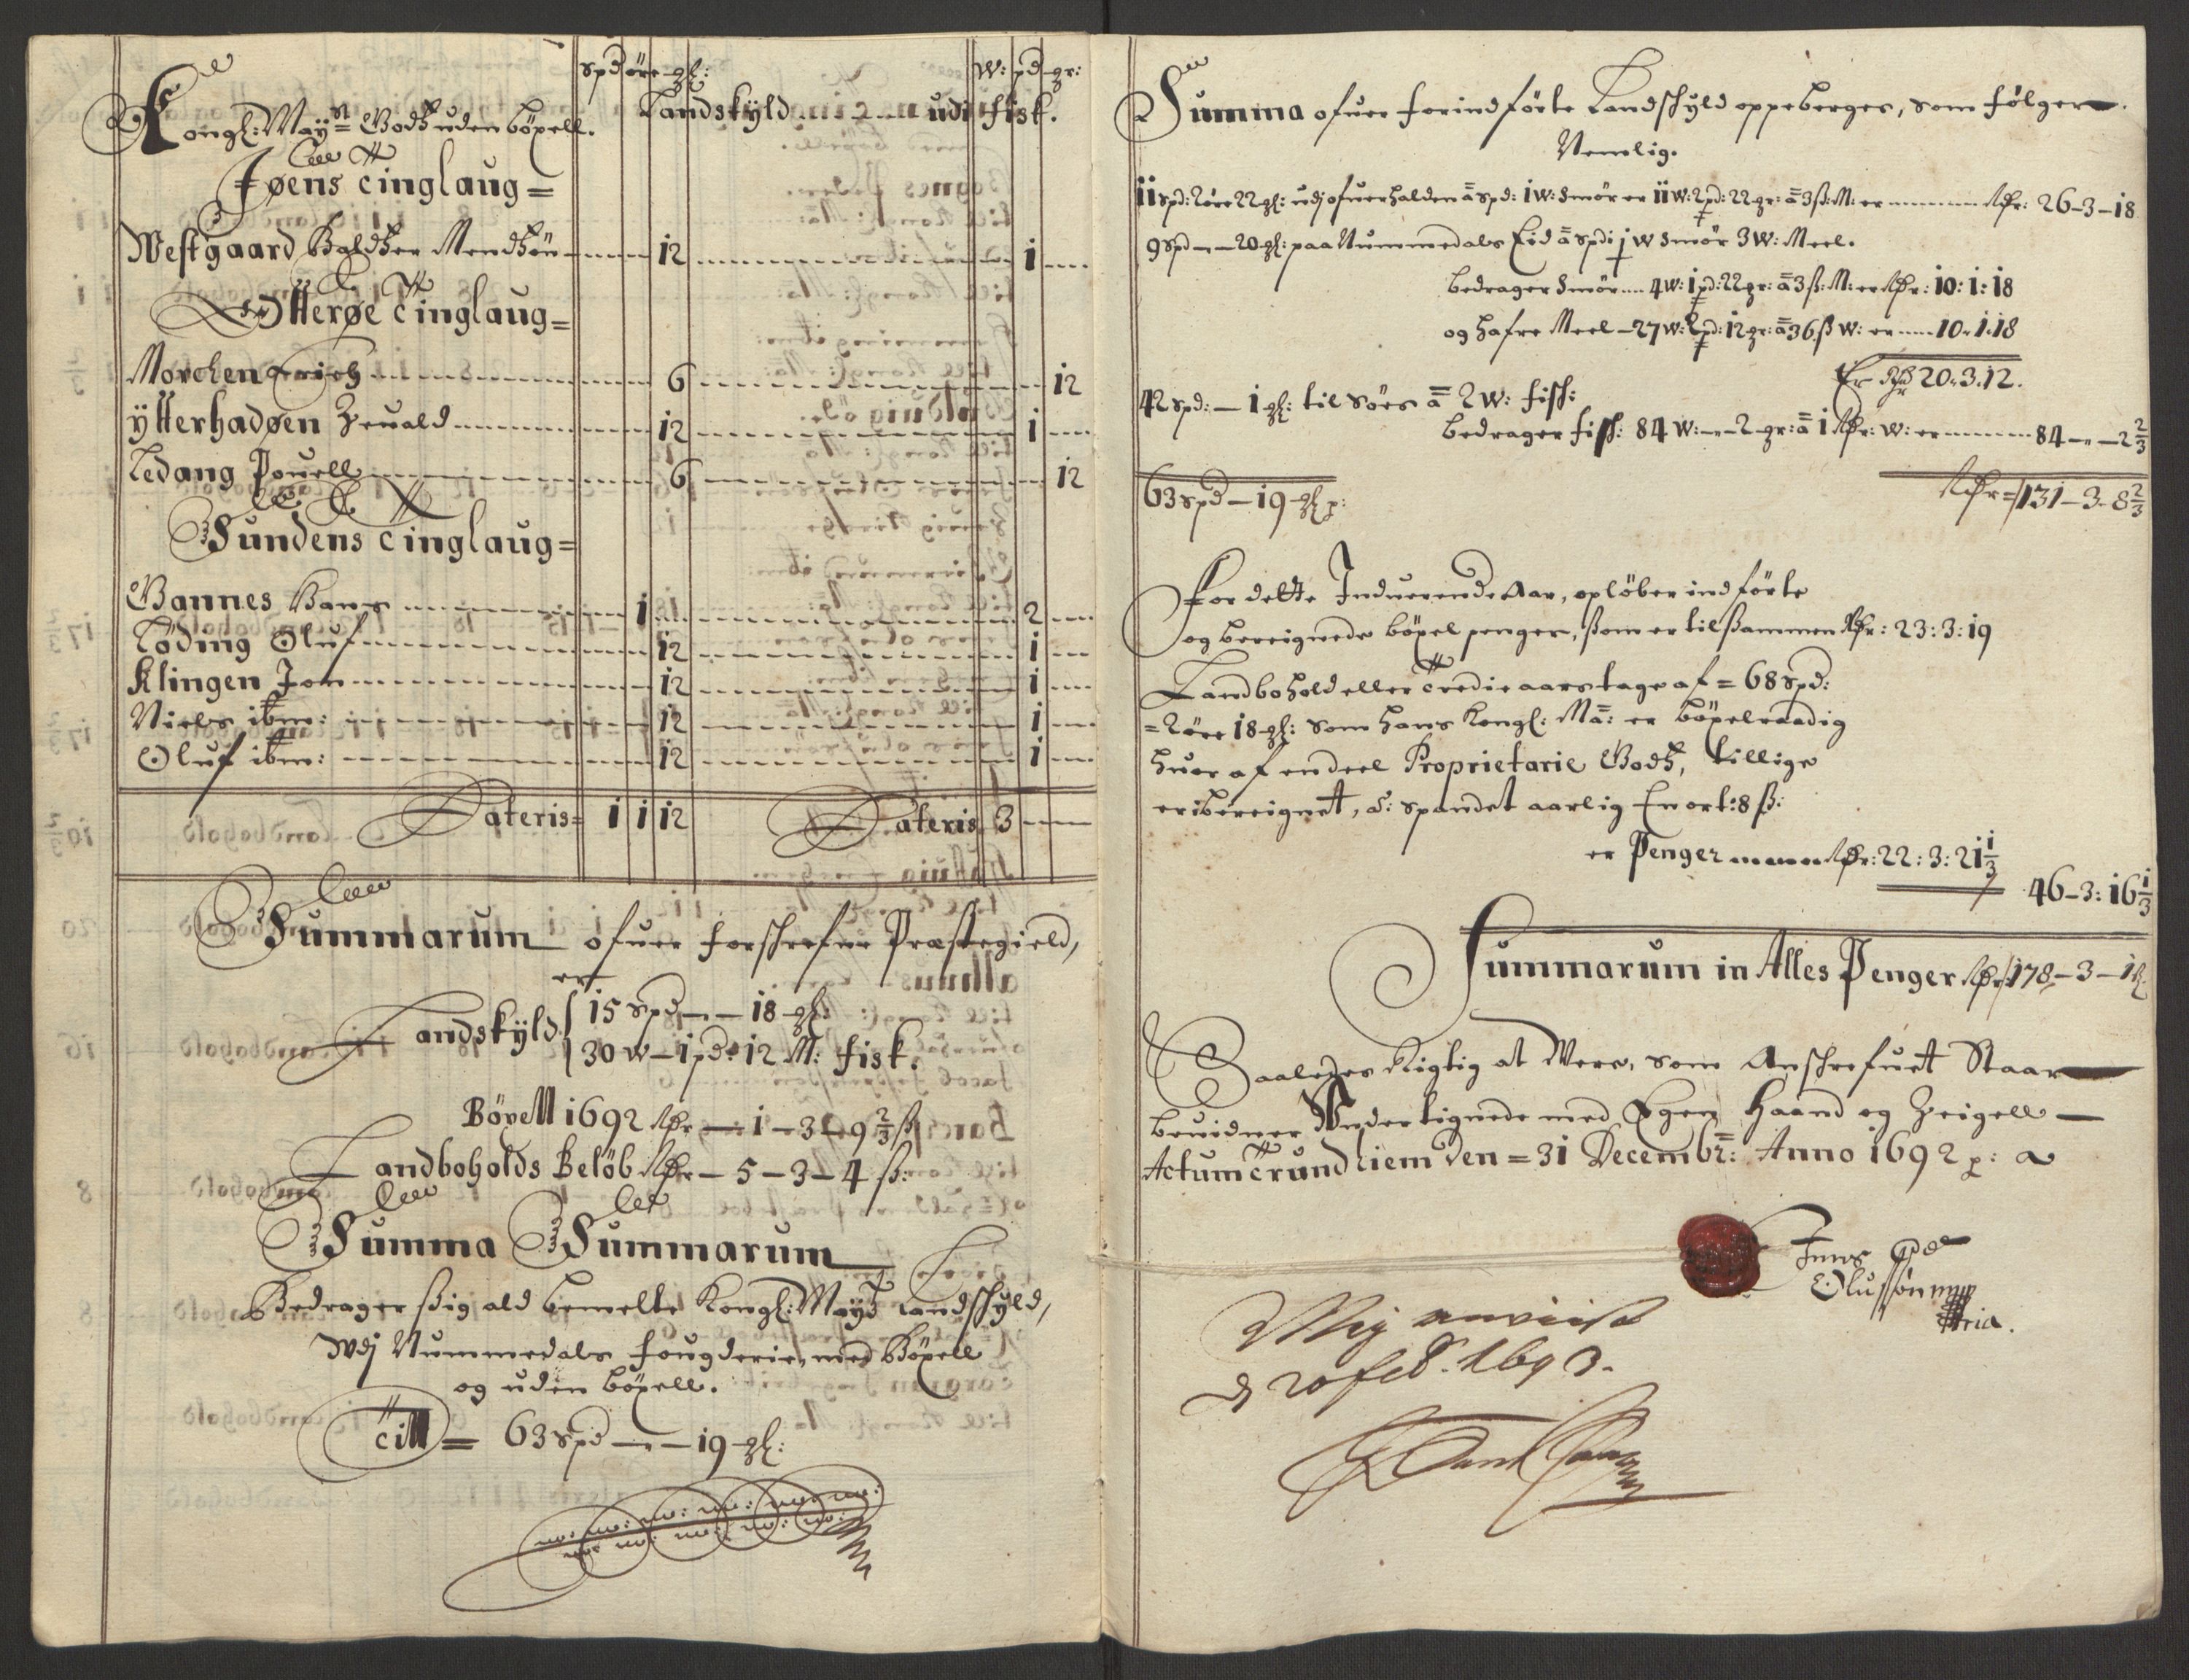 spd øre gl: w: pd gr:
Kongl: Mayst Godtz uden böxell. Landskyld udi fisk.
Føens Tinglaug =
Westgaard Baltzer Mentzön 12 1
Otterøe Tinglaug =
Morchen Erich 6 12
ÿtterhadøen Zeuald 12 1
Ledang Pouell 6 12
Sundens Tinglaug =
Bannes Hans 1 2
Töding Oluf 12 1
Klingen Jon 12 1
Niels ibm: 12 1
Oluf ibm: 12 1
Lateris = 1 1 12 Lateris 3
Summarum ofuer forschrefne Præstegield,
er
Landskÿld 15 spd — 18 gl
30 w — 1 pd: 12 M: fisk.
Böxell 1692 Rdr — 1 — 3 — 9 2/3 ß
Landboholds Beløb Rdr — 5 — 3 — 4 ß:
Summa Summarum
Bedrager sig ald bemelte Kongl: Mayts Landschyld,
Udj Nummedals fougderie, med Böxell
og uden böxell.
Till = 63 spd — 19 gl:
Summa ofuer forindførte Landschyld oppeberges, som følger.
Nemlig.
11 spd: 2 øre 22 gl: udj ofuerhalden a spd: 1 w: smör er 11 w: 2 pd: 22 gr: a 3 ß: M: er Rdr: 26 - 3 - 18
9 spd — 20 gl: paa Nummedals Eid a spd: 1 w smör 3 w: Meel.
bedrager smör 4 w: 1 pd: 22 gr: a 3 ß: M: er Rdr: 10: 1: 18
og hafre Meel — 27 w: 2 pd: 12 gr: a 36 ß w: er 10. 1. 18
Er Rdr 20. 3. 12.
42 spd: — 1 gl: til Søes a 2 w: fisk:
bedrager fisk: 84 w: — 2 gr: a 1 Rdr: w: er 84 — 2 2/3
63 spd — 19 gl p: Rdr = 131 — 3 - 8 2/3
For dette Induerende Aar, opløber indførte
og bereignede böxel penger, som er tilsammen Rdr: 23: 3: 19
Landbohold eller Tredie aars tage af = 68 spd:
= 2 øre 18 gl: som hans Kongl: Ma: er böxelraadig
huor af en deel Proprietarie Godtz, tillige
er ibereignet, a: spandet aarlig En ort: 8 ß:
er Penger Rdr: 22: 3: 21 1/3
46 - 3: 16 1/3
Summarum in Alles Penger Rdr 178 - 3 - 1 ß
Saaledes Rigtig at Were, som Anschrefuet Staar
beuidner Undertignede med Egen Haand og Zeigell —
Actum Trundhiem den = 31 Decembr: Anno 1692 p:
Jens
Olussøn mpp
Mig anviist
d 20 feb. 1693.